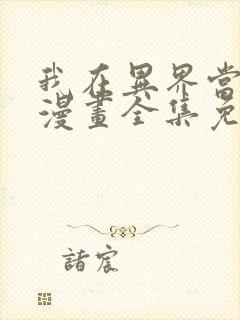 我在異界當
漫畫全集免
諸宸